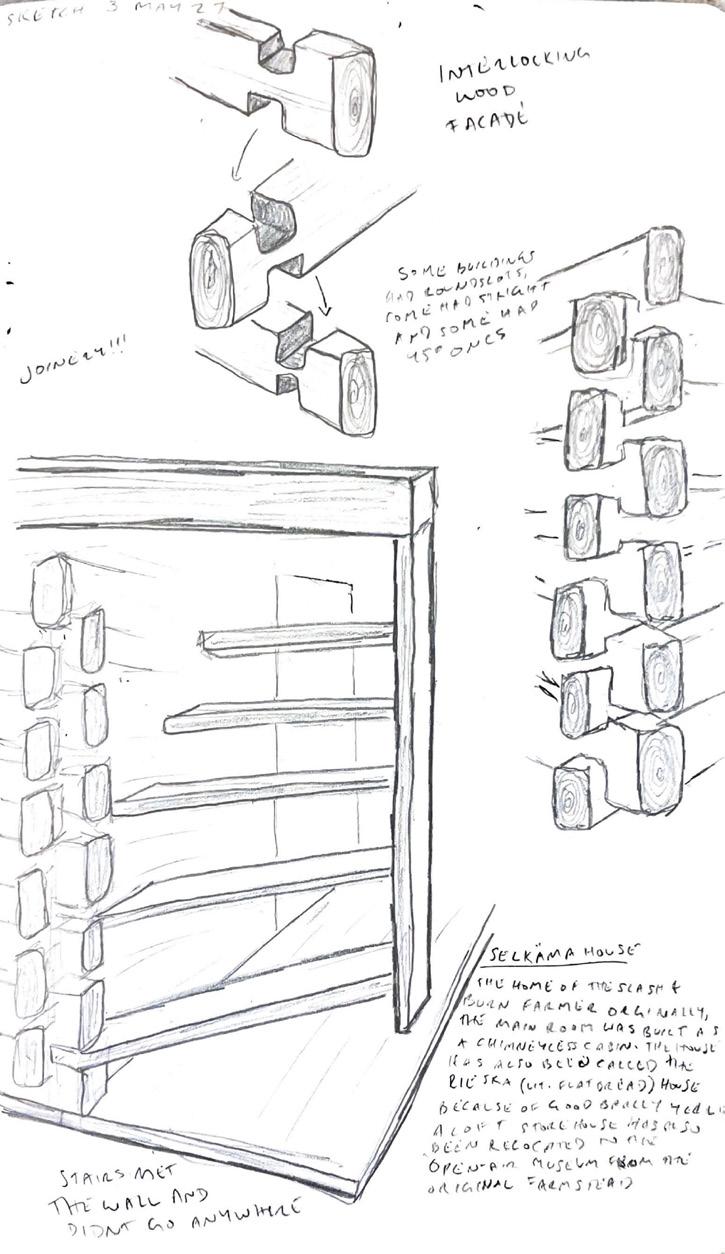 SKETCH 3 MAY 27
INTERLOCKING
WOOD
FACADÉ
SOME BUILDINGS
HAD ROUNDSLOTS,
SOME HAD STRIGHT
AND SOME HAD
45° ONES
JOINERY!!!
SELKÄMA HOUSE
THE HOME OF THE SLASH &
BURN FARMER ORGINALLY,
THE MAIN ROOM WAS BUILT AS
A CHIMNEYLESS CABIN. THE HOUSE
HAS ALSO BEEN CALLED THE
RIESKA (LIT. FLATBREAD) HOUSE
BECAUSE OF GOOD BARLLY
A LOFT STOREHOUSE HAS ALSO
BEEN RELOCATED TO THE
OPEN-AIR MUSEUM FROM THE
ORIGINAL FARMSTEAD
STAIRS MET
THE WALL AND
DIDNT GO ANYWHERE